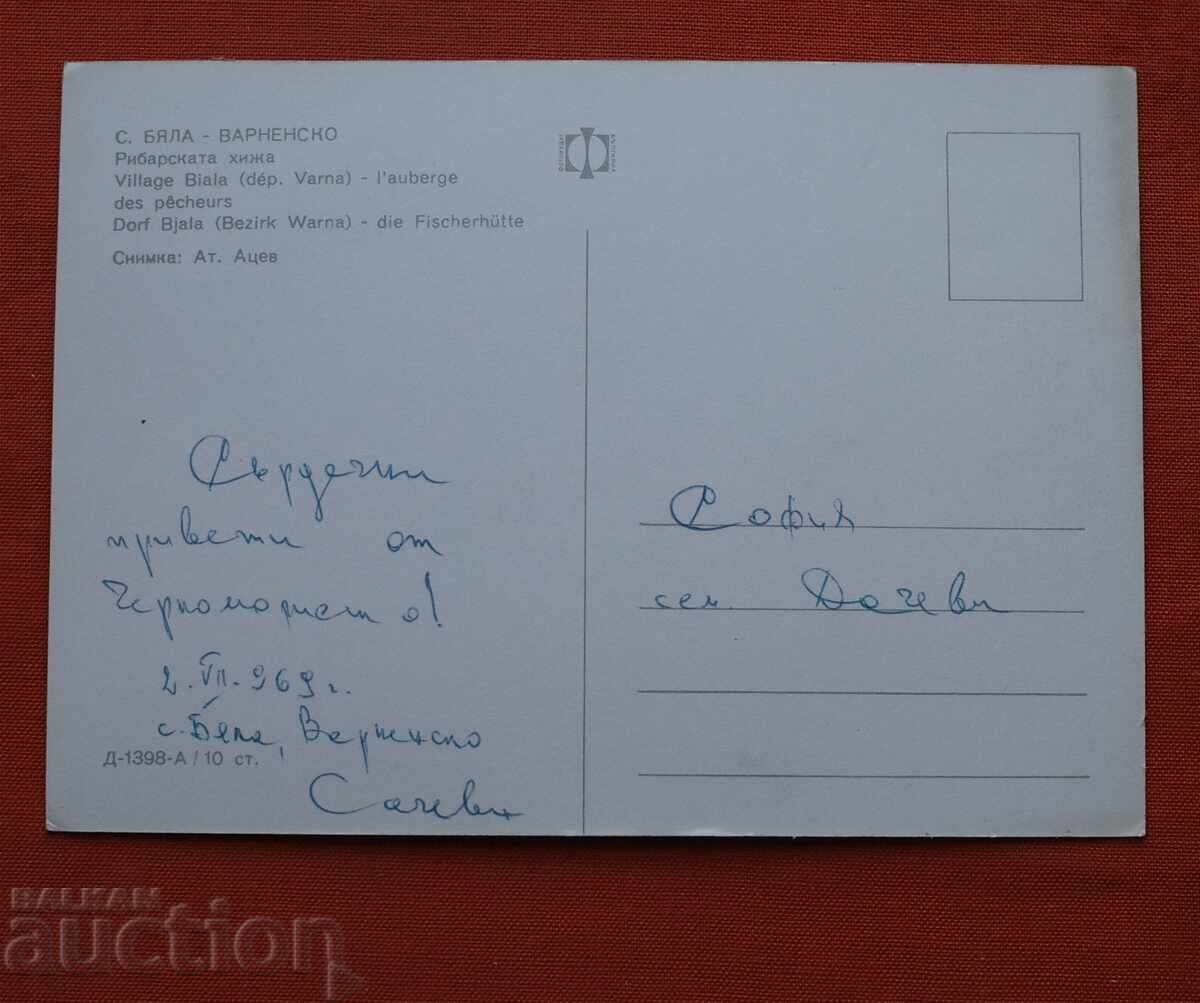 С. БЯЛА - ВАРНЕНСКО
Рибарската хижа
Village Biala (dép. Varna) - l'auberge
des pêcheurs
Dorf Bjala (Bezirk Warna) - die Fischerhütte
Снимка: Ат. Ацев
Сърдечни
привети от
Черноморието!
2.VII.969 г.
с. Бяла, Варненско
Д-1398-А/10 ст.
Сачеви
София
сем. Дочеви
BALKAN
auction